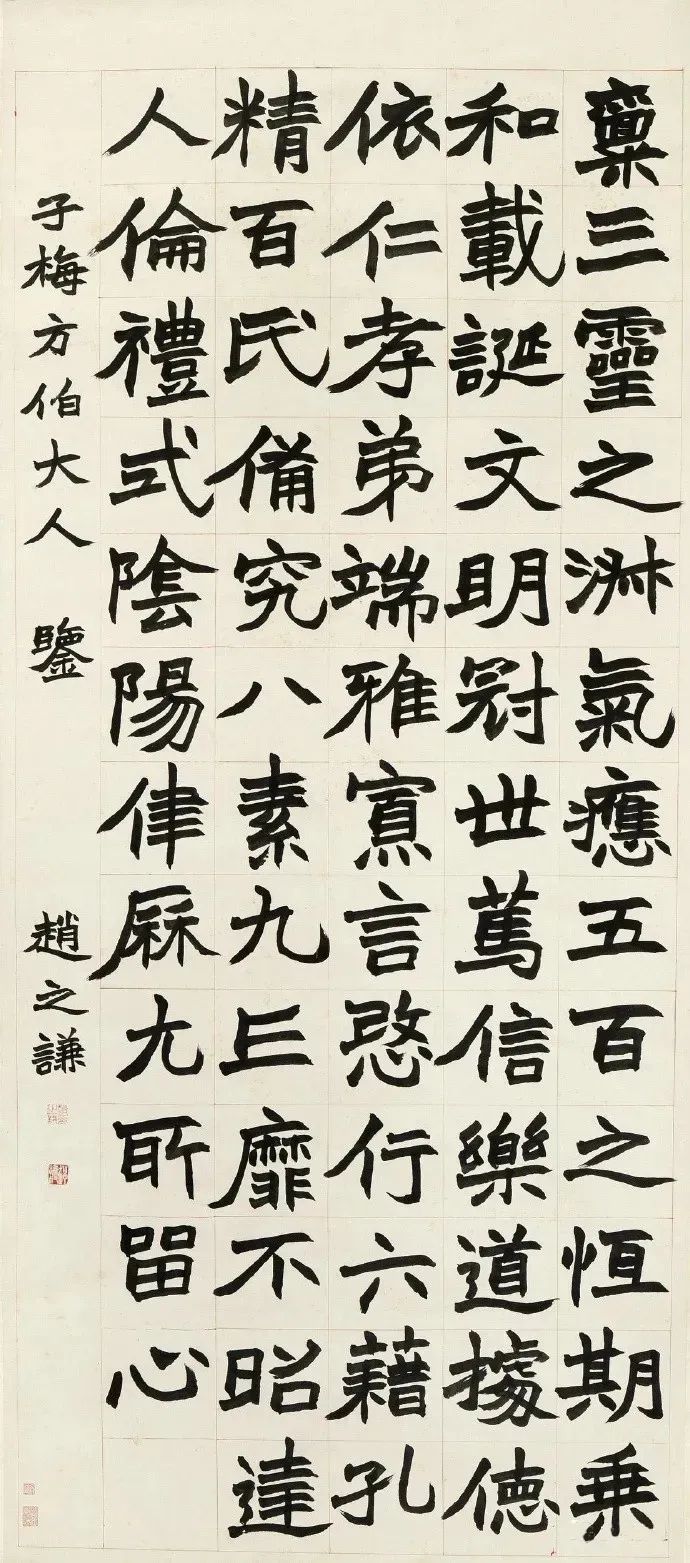 稟三靈之淋氣應五百之恆期乗
和載誕文明冠世萬信樂道據徳
依仁孝弟端雅寡言愍行六藉孔
精百氏備究八素九丘靡不昭達
人倫禮式陰陽律厤尤所留心
子梅方伯大人 鑒
趙之謙